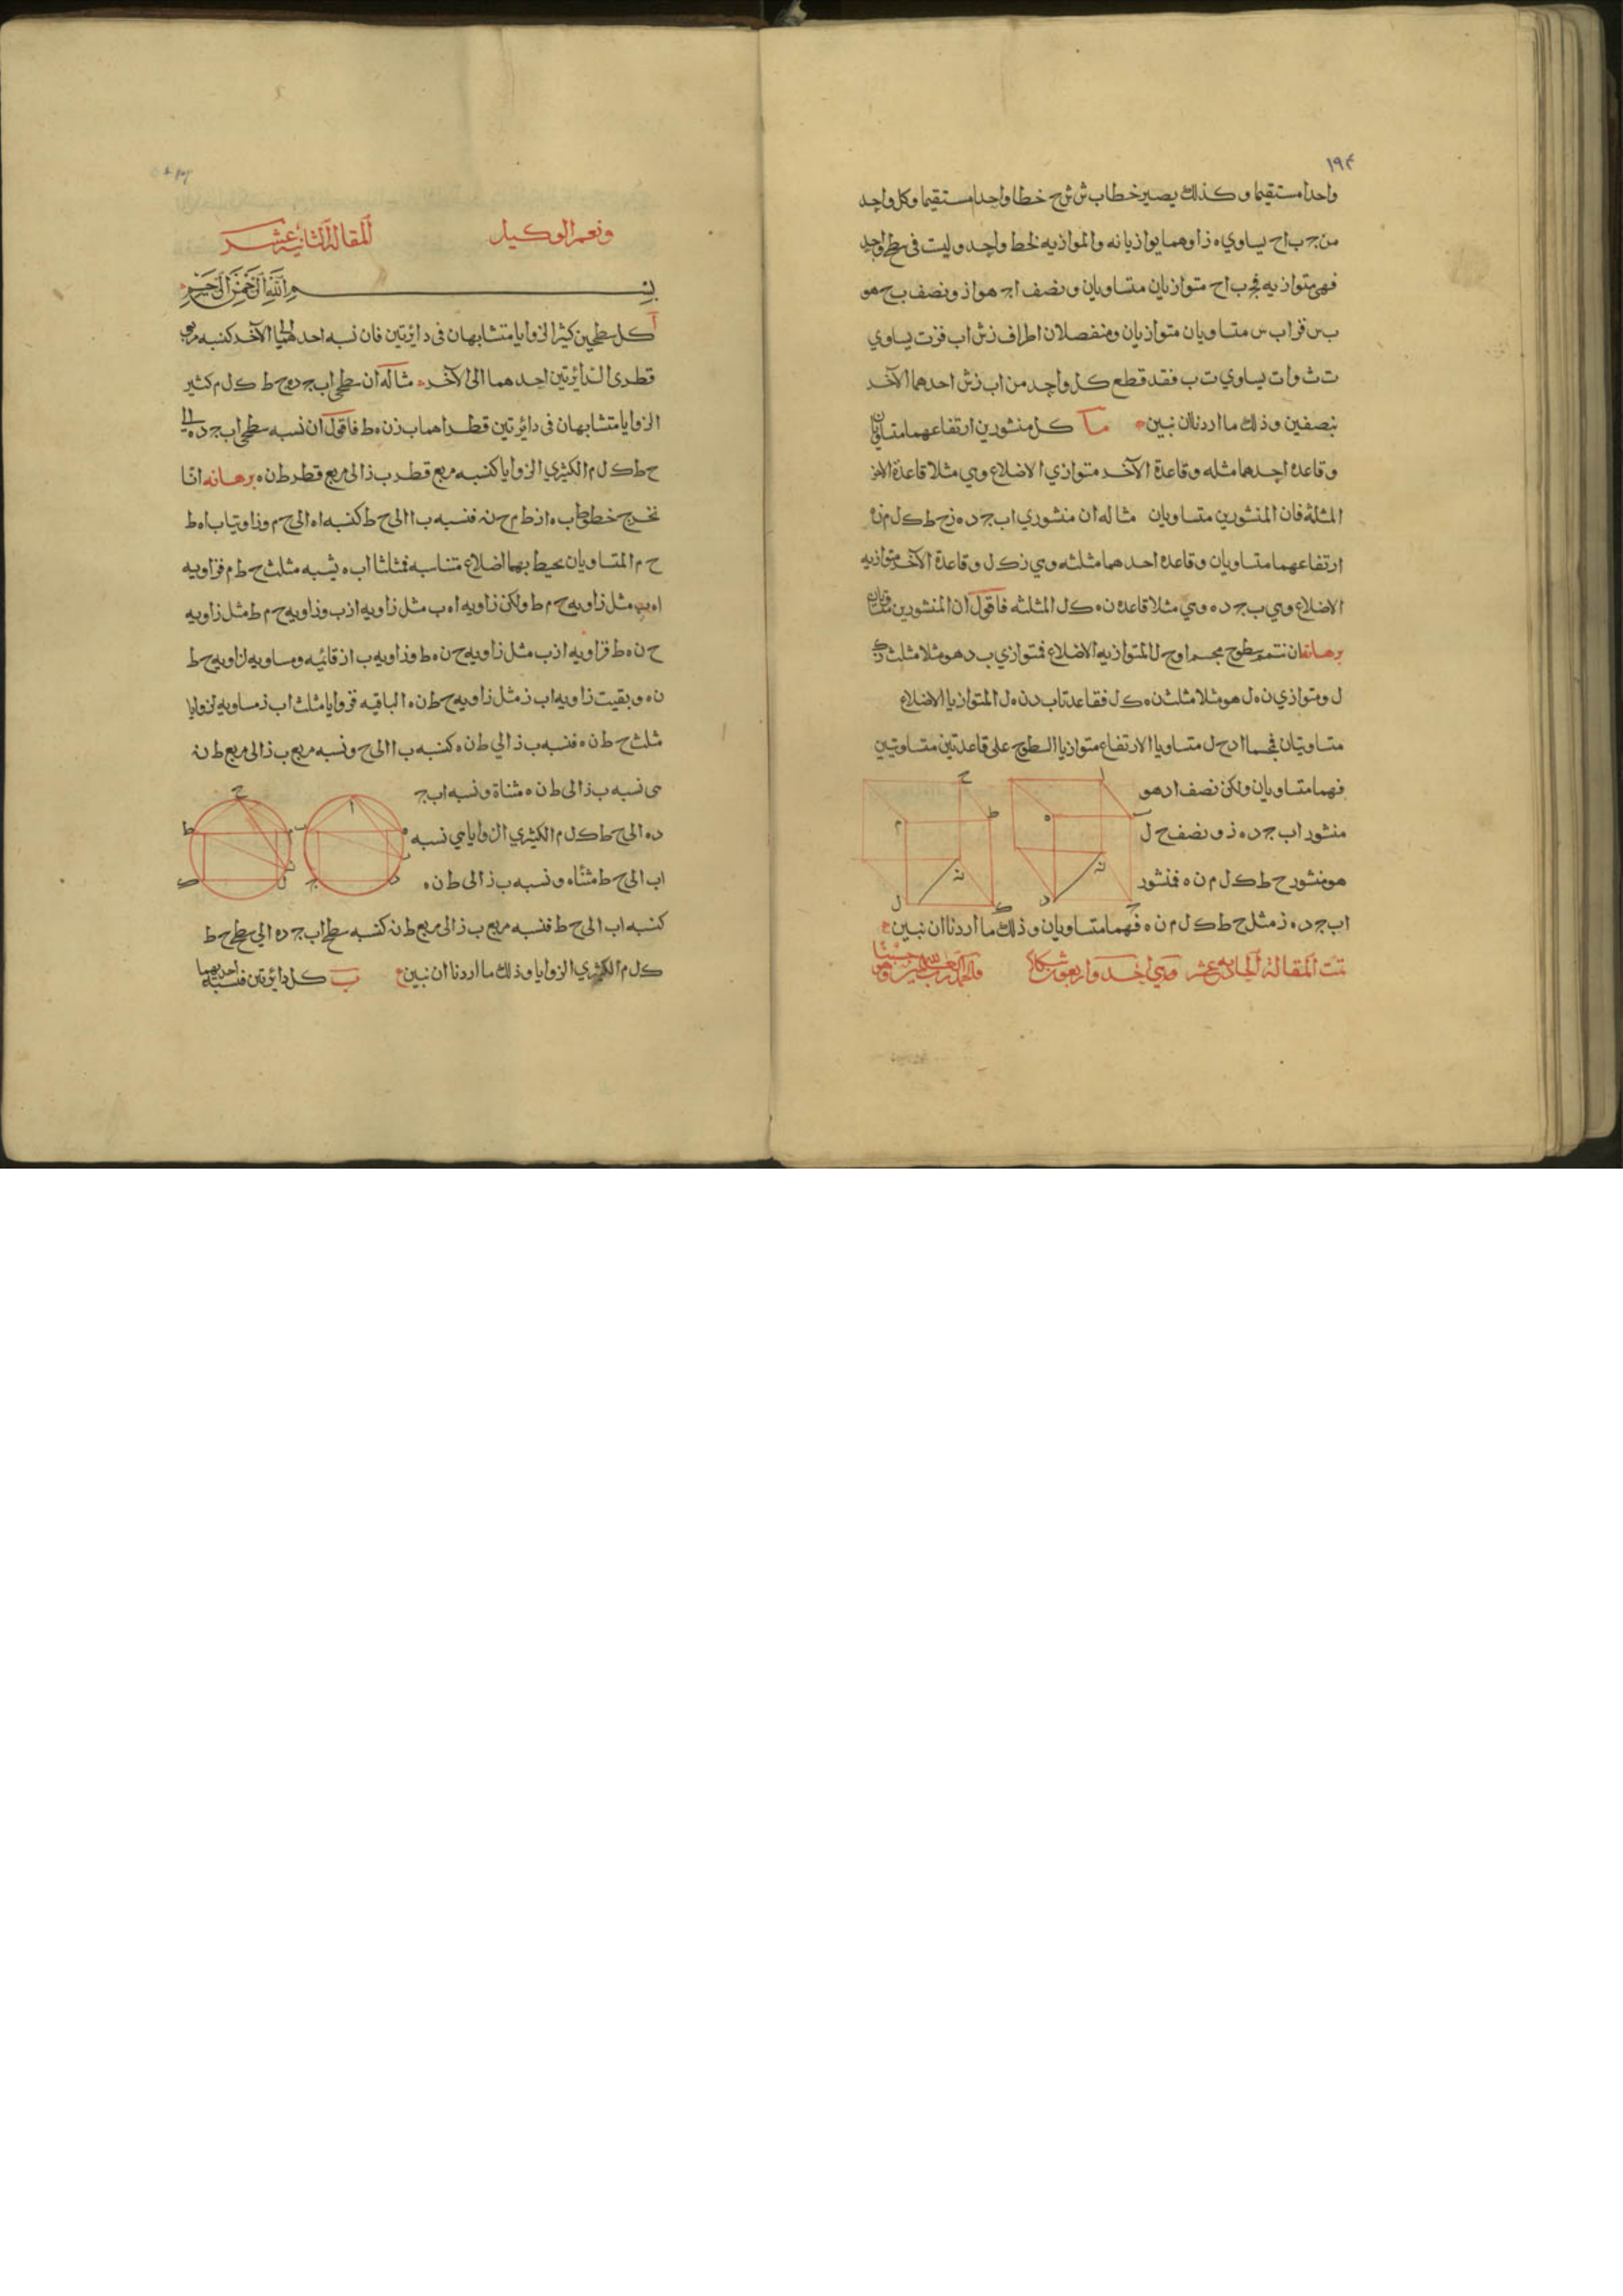 ١٩٤
واحدا مستقيما وكذلك يصير خطا ب ش ش ح خطا واحدا مستقيما وكل واحد
من ج ب اح يساوي ه ز اوهما يوازيانه والموازيه لخط واحد وليست في سطح واحد
فهي متوازيه فج ب اح متوازيان متساويان ونصف اج هو از ونصف ب ح هو
ب س فز اب س متساويان متوازيان ومنفصلان اطراف زش اب فزت يساوي
ت ث وات يساوي ت ب فقد قطع كل واحد من اب زش احدهما الآخر
بنصفين وذلك ما اردنا ان نبين ما كل منشورين ارتفاعهما متساويان
وقاعدة احدهما مثله وقاعدة الآخر متوازي الاضلاع وهي مثلا قاعدة الاخر
المثلثة فان المنشورين متساويان مثاله ان منشوري اب ج د ه ز ح ط ك ل م ن
ارتفاعهما متساويان وقاعدة احدهما مثلثه وهي ن ك ل وقاعدة الآخر متوازيه
الاضلاع وهي ب ج د ه وهي مثلا قاعدة ن ه ك ل المثلثه فاقول ان المنشورين متساويان
برهانه ان نتمم سطوح مجسم او ح ل المتوازيه الاضلاع فمتوازي ب د هو مثلا مثلث
ل ومتوازي ن ه ل هو مثلا مثلث ن ه ك ل فقاعدتاب د ن ه ل المتوازيا الاضلاع
متساويتان فمجسما اد ح ل متساويا الارتفاع متوازيا السطوح على قاعدتين متساويتين
فهما متساويان ولكن نصف اد هو
منشور اب ج د ه ز ونصف ح ل
هو منشور ح ط ك ل م ن ه فمنشور
اب ج د ه ز مثل ح ط ك ل م ن ه فهما متساويان وذلك ما اردنا ان نبين
تمت المقالة الحاديه عشر وهي احد واربعون شكلا
ونعم الوكيل المقالة الثانيه عشر
بسم الله الرحمن الرحيم
ا كل سطحين كثيرا الزوايا متشابهان في دائرتين فان نسبه احدهما الى الآخر كنسبه مربعي
قطري الدائرتين احدهما الى الآخر مثاله ان سطحي اب ج د ه ح ط ك ل م كثير
الزوايا متشابهان في دائرتين قطراهما ب ز ن ه ط فاقول ان نسبه سطح اب ج د ه الى
ح ط ك ل م الكثيري الزوايا كنسبه مربع قطر ب ز الى مربع قطر ط ن ه برهانه انا
نخرج خطوط ب ه از ط م ح ن فنسبه ب ا الى ح ط كنسبه ا ه الى ح م وزاويتا ب ا ه ط
ح م المتساويان يحيط بهما اضلاع متناسبه فمثلثا اب ه يشبه مثلث ح ط م فزاويه
ا ه ب مثل زاويه ح م ط ولكن زاويه ا ه ب مثل زاويه ا ز ب وزاويه ح م ط مثل زاويه
ح ن ه ط فزاويه ا ز ب مثل زاويه ح ن ه ط وزاويه ب ا ز قائمه ومساويه لزاويه ح ط
ن ه وبقيت زاويه اب ز مثل زاويه ح ط ن ه الباقيه فزوايا مثلث اب ز مساويه لزوايا
مثلث ح ط ن ه فنسبه ب ز الى ط ن ه كنسبه ب ا الى ح ونسبه مربع ب ز الى مربع ط ن
هي نسبه ب ز الى ط ن ه مثناة ونسبه اب ج
د ه الى ح ط ك ل م الكثيري الزوايا هي نسبه
اب الى ح ط مثناه ونسبه ب ز الى ط ن ه
كنسبه اب الى ح ط فنسبه مربع ب ز الى مربع ط ن كنسبه سطح اب ج د ه الى سطح ح ط
ك ل م الكثيري الزوايا وذلك ما اردنا ان نبين ب كل دائرتين فنسبه احديهما